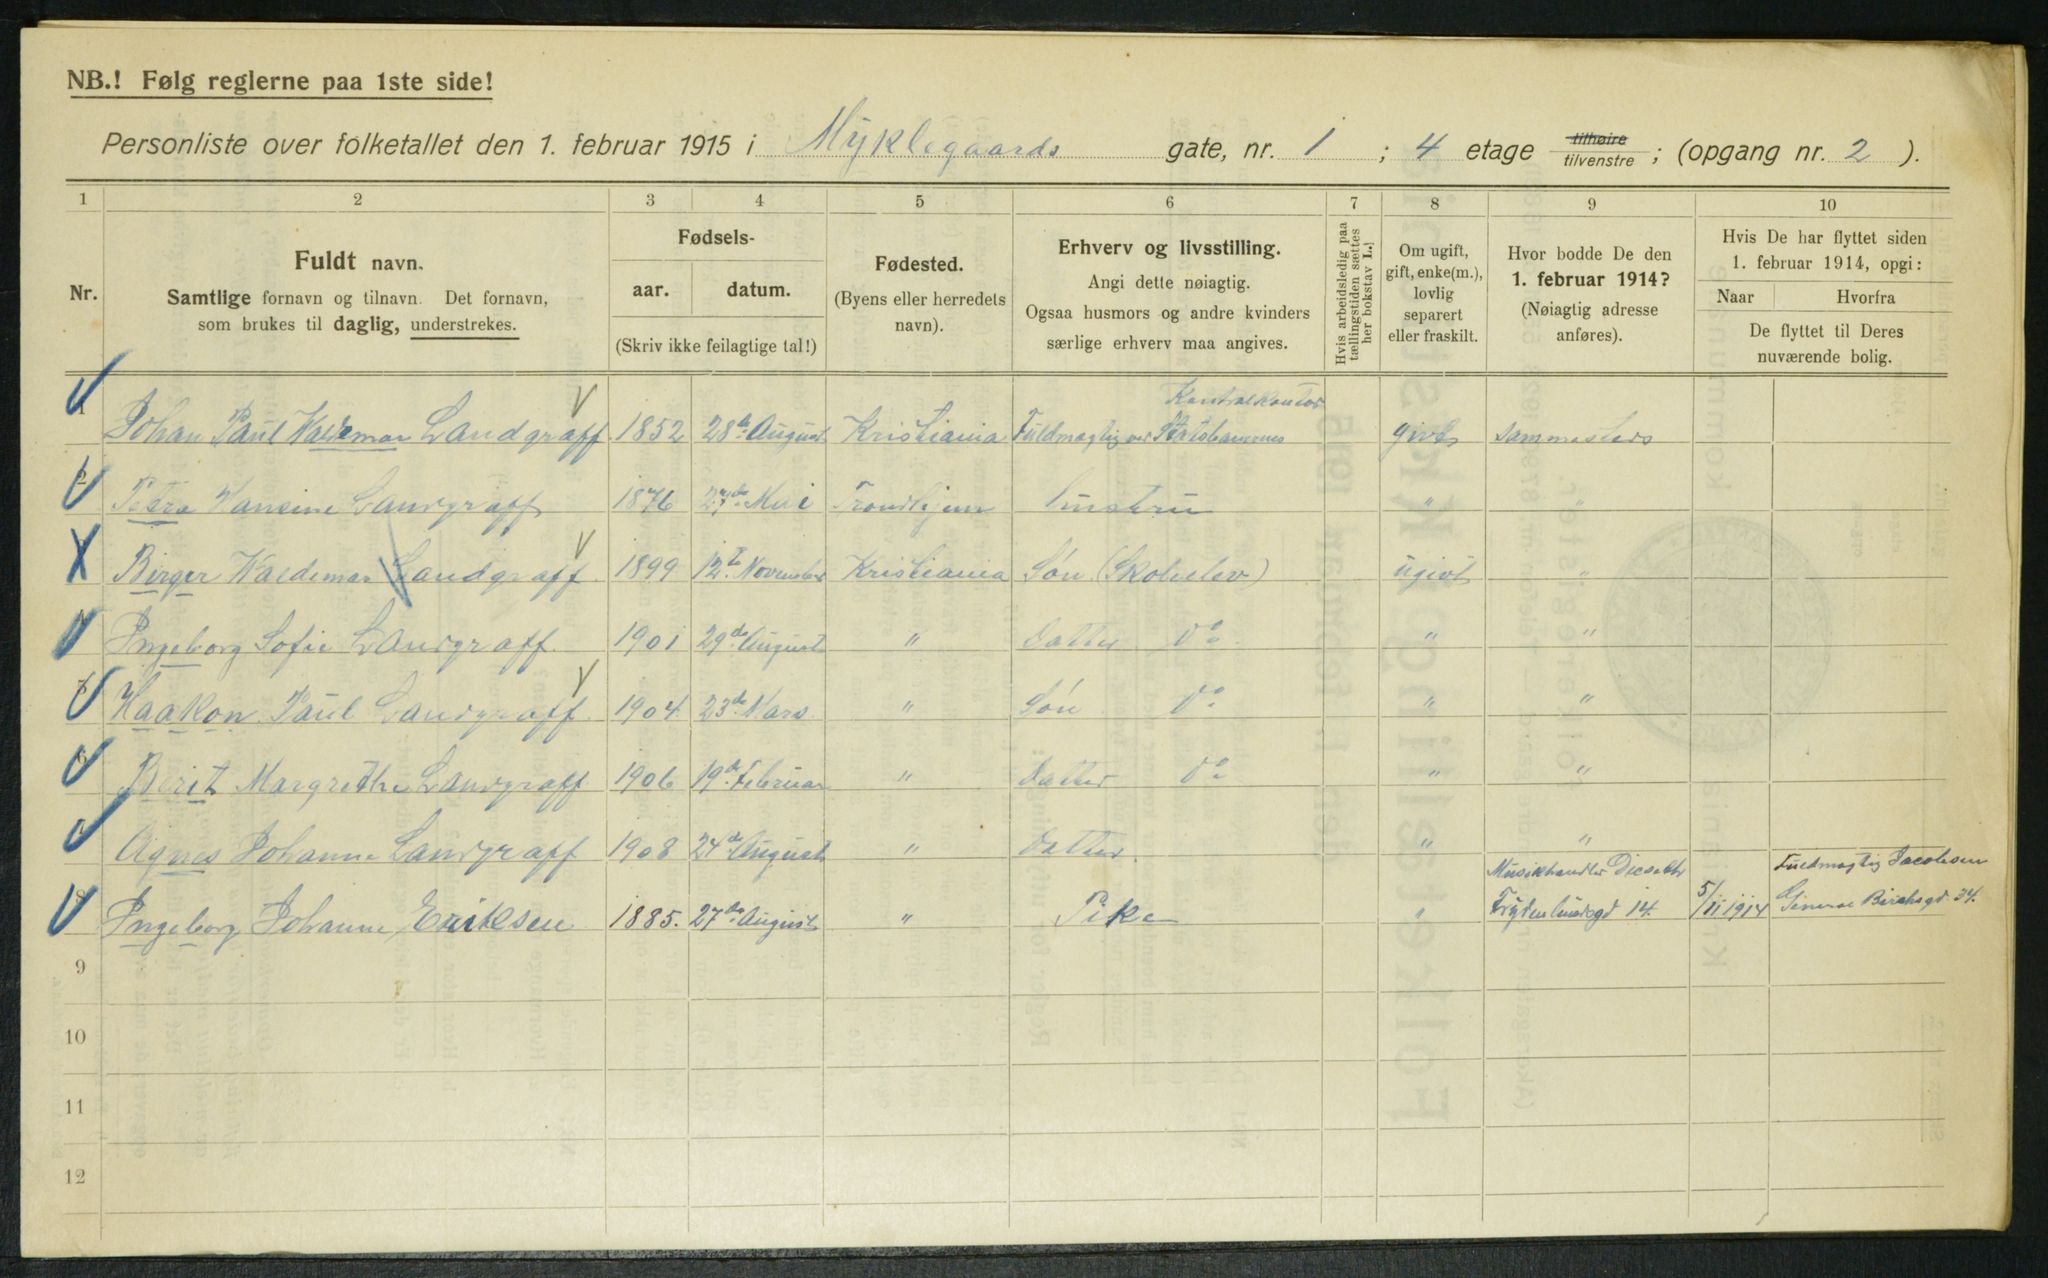 NB.! Følg reglerne paa 1ste side!
Personliste over folketallet den 1. februar 1915 i Myklegaards gate, nr. 1 ; 4 etage tilhøire tilvenstre ; (opgang nr. 2 ).
1 2 3 4 5 6 7 8 9 10
Nr.
Fuldt navn.
Samtlige fornavn og tilnavn. Det fornavn,
som brukes til daglig, understrekes.
Fødsels-
aar. datum.
(Skriv ikke feilagtige tal!)
Fødested.
(Byens eller herredets
navn).
Erhverv og livsstilling.
Angi dette nøiagtig.
Ogsaa husmors og andre kvinders
særlige erhverv maa angives.
Hvis arbeidsledig paa
tællingstiden sættes
her bokstav L.!
Om ugift,
gift, enke(m.),
lovlig
separert
eller fraskilt.
Hvor bodde De den
1. februar 1914?
(Nøiagtig adresse
anføres).
Hvis De har flyttet siden
1. februar 1914, opgi:
Naar Hvorfra
De flyttet til Deres
nuværende bolig.
Kontrolkontor
1 Johan Paul Waldemar Landgraff 1852 28de August Kristiania Fuldmægtig ved Statsbanernes givt sammesteds
2 Petra Hansine Landgraff 1876 27de Mai Trondhjem hustru " "
Birger Waldemar Landgraff 1899 12te November Kristiania Søn (Skoleelev) ugivt "
Ingeborg Sofie Landgraff 1901 29de August " Datter Do " "
Haakon Paul Landgraff 1904 23de Mars " Søn Do " "
6 Berit Margrethe Landgraff 1906 19de Februar " Datter Do " "
Agnes Johanne Landgraff 1908 24de August " Datter " "
Musikhandler Fuldmægtig Jacobsen
8 Ingeborg Johanne Eriksen 1885. 27de August " Pike " Frydenlundsgd 14. 5/11 1914 General Birchsgd 34.
9
10
11
12